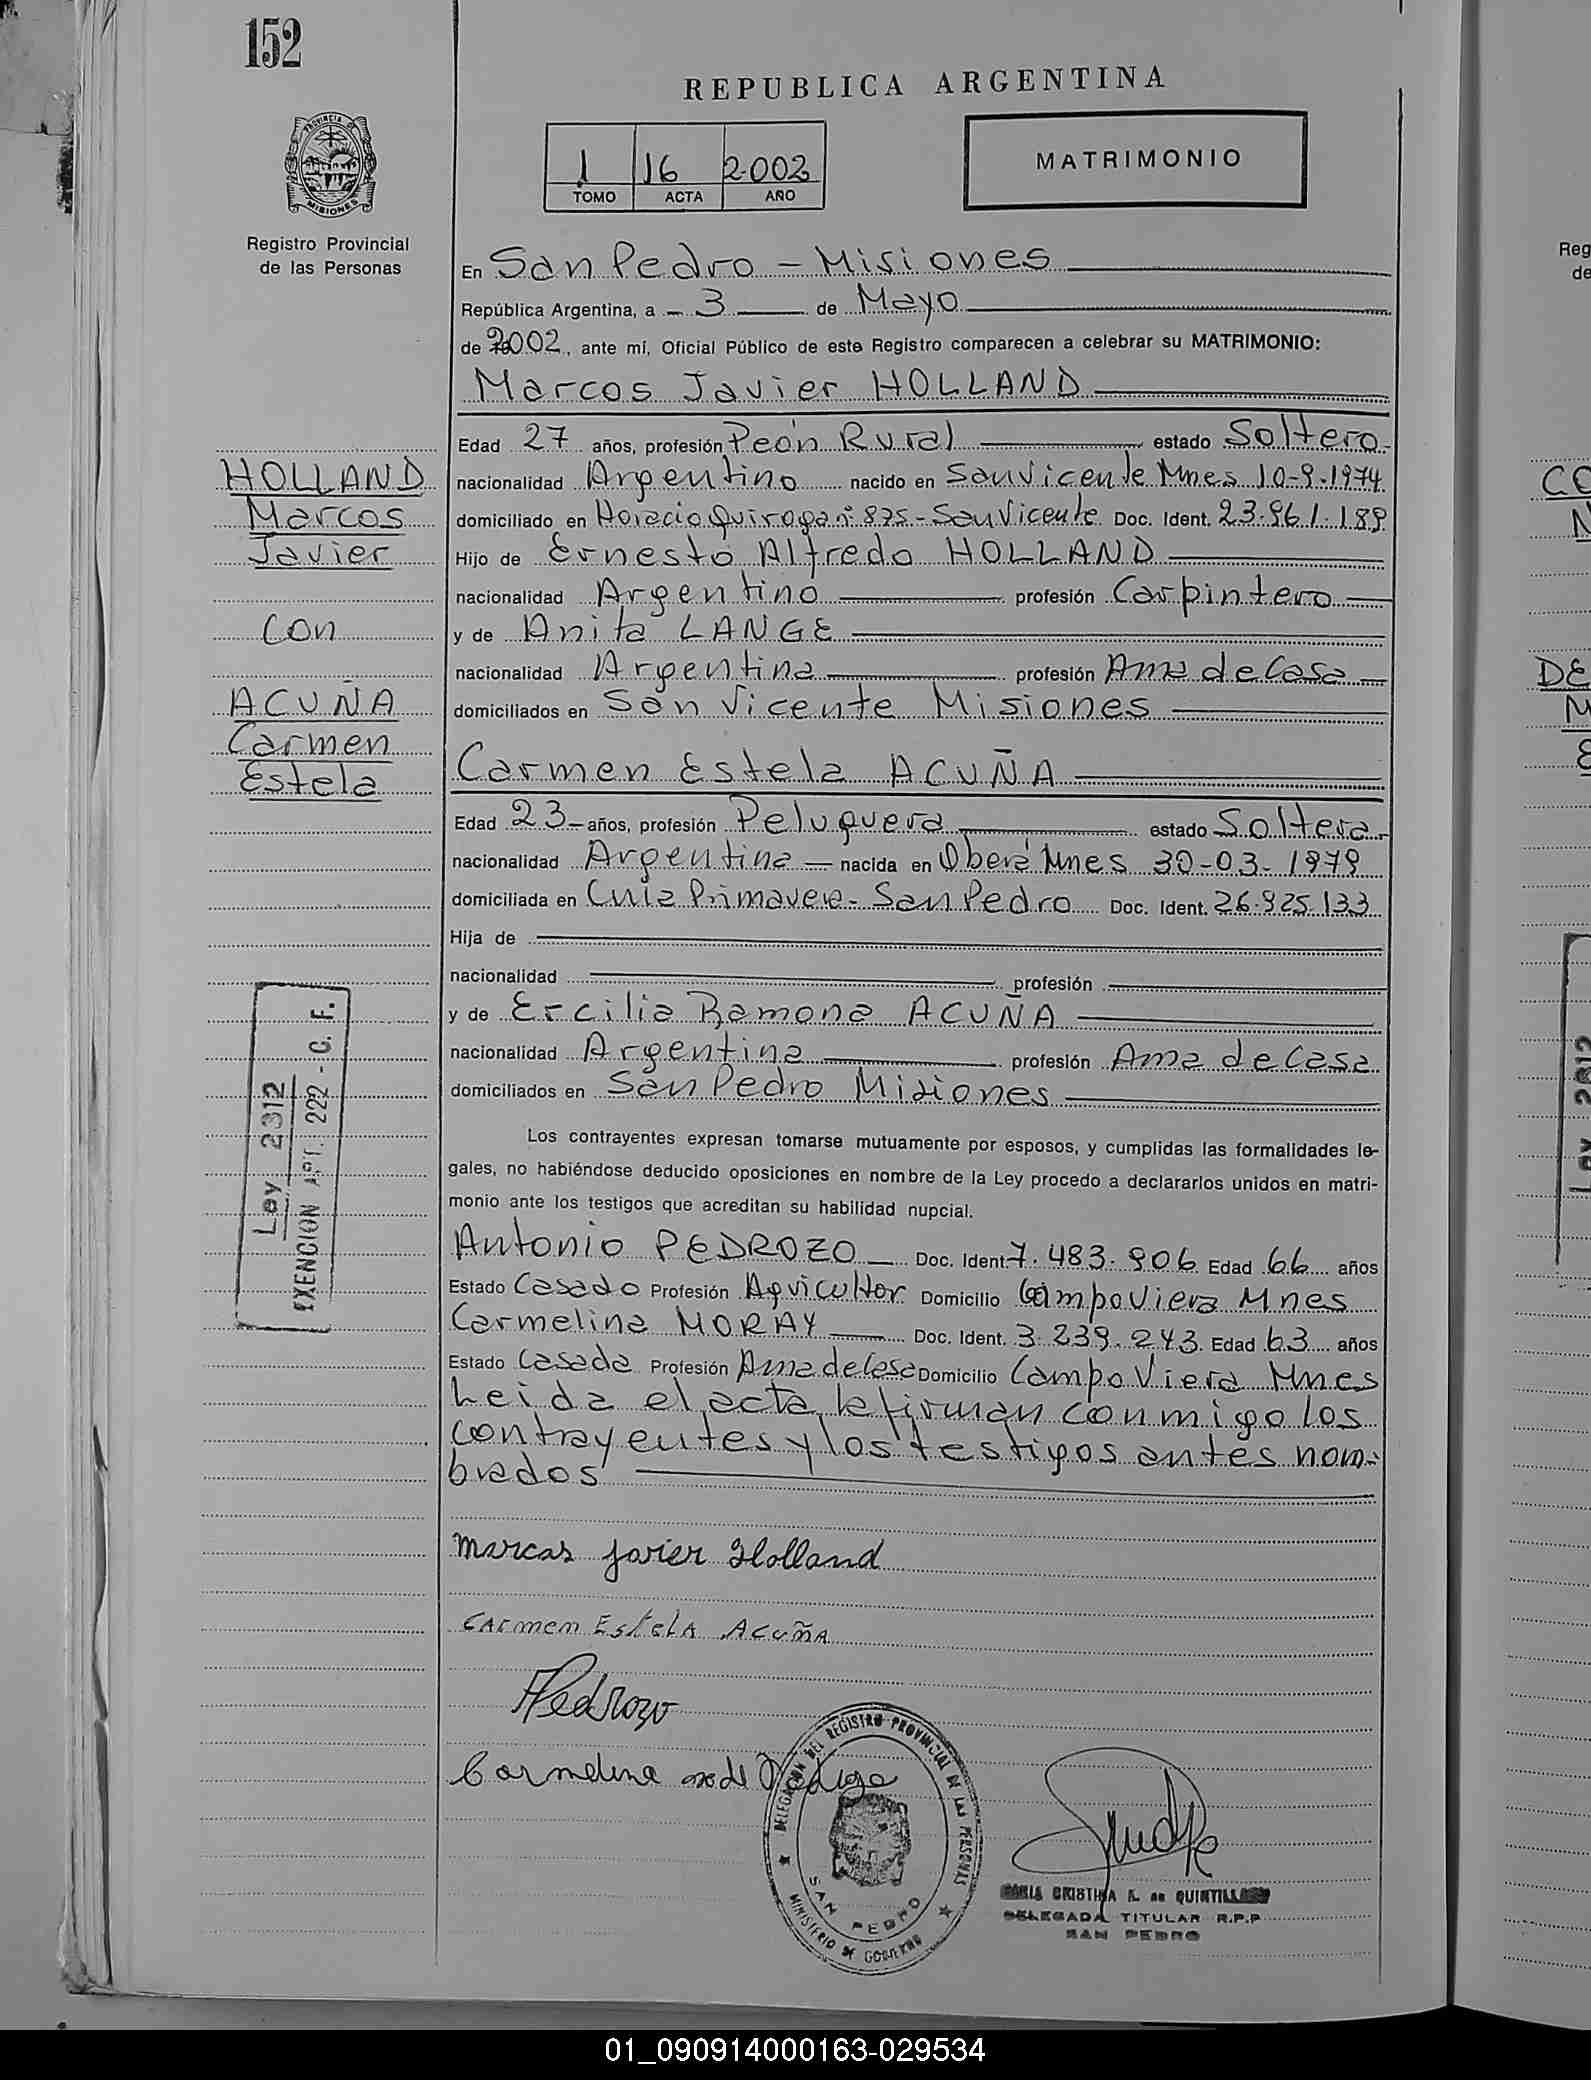 152
REPUBLICA ARGENTINA
1 16 2.002
TOMO ACTA AÑO
MATRIMONIO
PROVINCIA DE MISIONES
Registro Provincial
de las Personas
En San Pedro - Misiones
República Argentina, a - 3 de Mayo
de 2002, ante mí, Oficial Público de este Registro comparecen a celebrar su MATRIMONIO:
Marcos Javier HOLLAND
Edad 27 años, profesión Peón Rural estado Soltero-
HOLLAND
Marcos
Javier
con
ACUÑA
Carmen
Estela
nacionalidad Argentino nacido en San Vicente Mnes 10-9-1974
domiciliado en Horacio Quiroga nº 875-San Vicente Doc. Ident. 23.961.189
Hijo de Ernesto Alfredo HOLLAND
nacionalidad Argentino profesión Carpintero
y de Anita LANGE
nacionalidad Argentina profesión Ama de Casa
domiciliados en San Vicente Misiones
Carmen Estela ACUÑA
Edad 23- años, profesión Peluquera estado Soltera-
nacionalidad Argentina nacida en Oberá Mnes 30-03-1979
domiciliada en Cruce Primavera- San Pedro Doc. Ident. 26.925.133
Hija de
nacionalidad profesión
y de Ercilia Ramona ACUÑA
nacionalidad Argentina profesión Ama de Casa
domiciliados en San Pedro Misiones
Ley 2312
EXENCION ART. 222 - C. F.
Los contrayentes expresan tomarse mutuamente por esposos, y cumplidas las formalidades le-
gales, no habiéndose deducido oposiciones en nombre de la Ley procedo a declararlos unidos en matri-
monio ante los testigos que acreditan su habilidad nupcial.
Antonio PEDROZO Doc. Ident. 7.483.906 Edad 66 años
Estado Casado Profesión Agricultor Domicilio Campo Viera Mnes
Carmelina MORAY Doc. Ident. 3.239.243 Edad 63 años
Estado Casada Profesión Ama de Casa Domicilio Campo Viera Mnes
Leida el acta, la firman conmigo los
contrayentes y los testigos antes nom-
brados
Marcos Javier Holland
Carmen Estela Acuña
APedrozo
Carmelina de
DELEGACION DEL REGISTRO PROVINCIAL DE LAS PERSONAS
SAN PEDRO
MINISTERIO DE GOBIERNO
MARIA CRISTINA A. de QUINTILLANO
DELEGADA TITULAR R.P.P
SAN PEDRO
Reg
de
CO
DE
Ley 2312
01_090914000163-029534